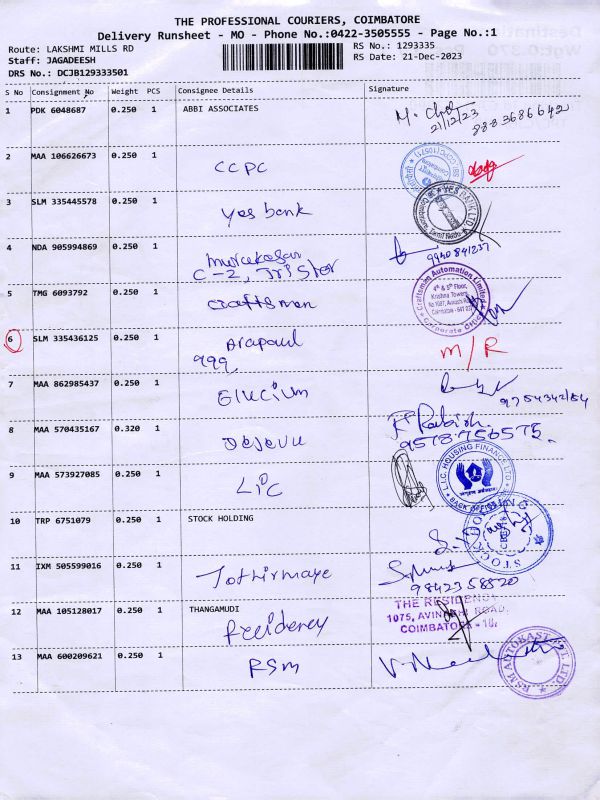 THE PROFESSIONAL COURIERS, COIMBATORE
Delivery Runsheet - MO - Phone No.:0422-3505555 - Page No.:1
Route: LAKSHMI MILLS RD
RS No.: 1293335
Staff: JAGADEESH
RS Date: 21-Dec-2023
DRS No.: DCJB129333501
S No Consignment No Weight PCS Consignee Details Signature
1 PDK 6048687 0.250 1 ABBI ASSOCIATES
21/12/23
2 MAA 106626673 0.250 1 CCPC
3 SLM 335445578 0.250 1 yes bank
YES BANK LTD
4 NDA 905994869 0.250 1
C-2, Tri Star
5 TMG 6093792 0.250 1 craftsman
Craftsman Automation Limited
4th & 5th Floor,
Krishna Towers
Corporate Office
6 SLM 335436125 0.250 1
999
M/R
7 MAA 862985437 0.250 1 Glucium
8 MAA 570435167 0.320 1 Dejavu
9578756575
9 MAA 573927085 0.250 1 LIC
L.I.C. HOUSING FINANCE LTD
BACK OFFICE
10 TRP 6751079 0.250 1 STOCK HOLDING
11 IXM 505599016 0.250 1 Jothirmaye
9842358520
12 MAA 105128017 0.250 1 THANGAMUDI
Residency
THE RESIDENCY
1075, AVINASHI ROAD,
COIMBATORE - 18.
13 MAA 600209621 0.250 1 RSM
RSM AUTOKAST LTD.